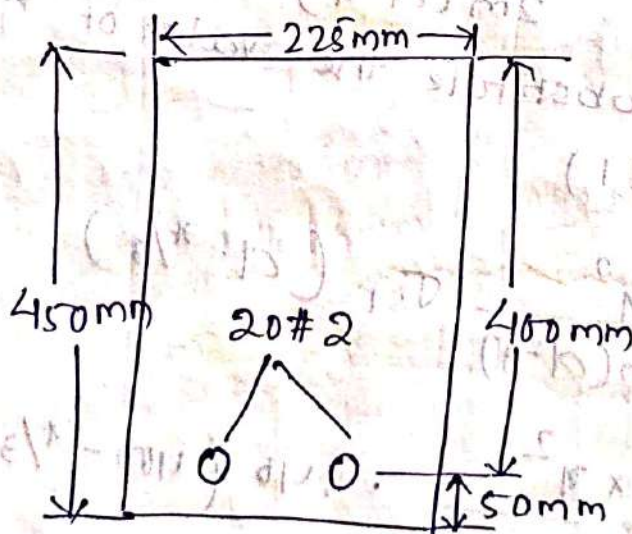 225mm
450mm
20#2
400mm
50mm